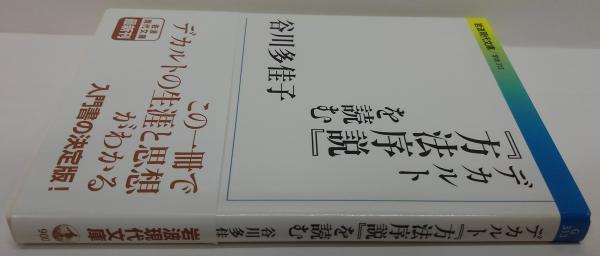 岩波現代文庫/学術315
デカルト
『方法序説』
を読む
谷川多佳子
岩波
現代文庫
最新刊
この一冊で
デカルトの生涯と思想
がわかる
入門書の決定版!
G
315
デカルト『方法序説』を読む
谷川多佳
岩波現代文庫
900